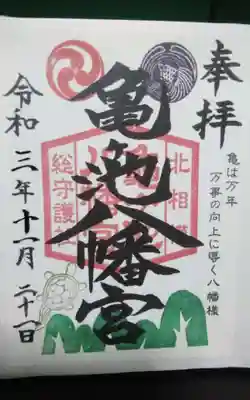 奉拝
亀は万年
万事の向上に導く八幡様
北相模
亀ヶ池八幡宮
総守護社
令和三年十一月二十一日